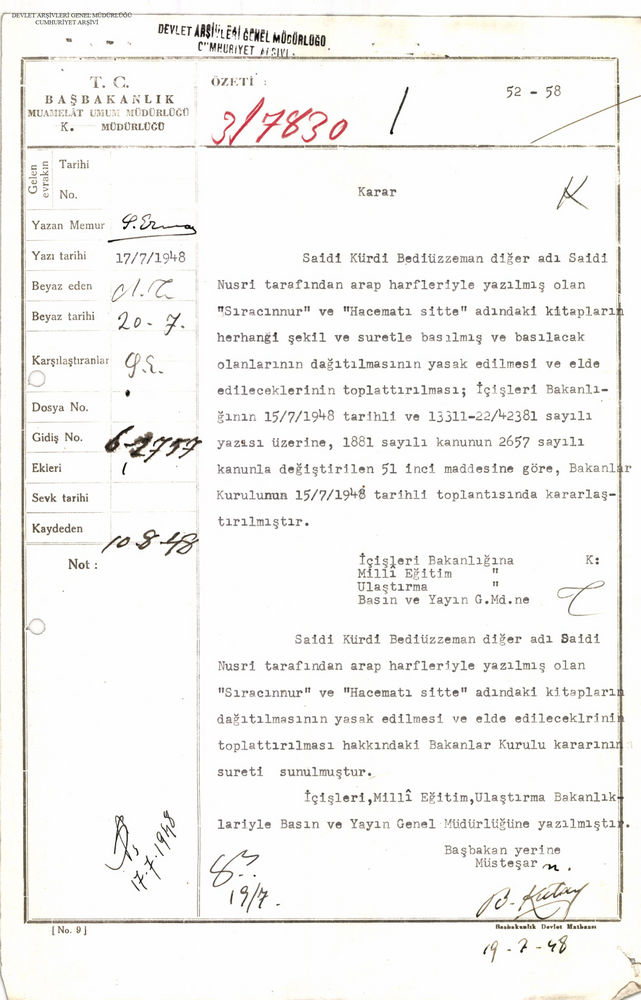 DEVLET ARŞİVLERİ GENEL MÜDÜRLÜĞÜ
CUMHURİYET ARŞİVİ
DEVLET ARŞİVLERİ GENEL MÜDÜRLÜĞÜ
CUMHURİYET ARŞİVİ
T. C.
BAŞBAKANLIK
MUAMELÂT UMUM MÜDÜRLÜĞÜ
K. MÜDÜRLÜĞÜ
ÖZETİ :
3/7830
52 - 58
Gelen evrakın
Tarihi
No.
Yazan Memur
Yazı tarihi 17/7/1948
Beyaz eden
Beyaz tarihi 20-7.
Karşılaştıranlar
Dosya No.
Gidiş No. 6-2757
Ekleri 1
Sevk tarihi
Kaydeden
10-8-48
Not :
Karar
K
Saidi Kürdi Bediüzzeman diğer adı Saidi
Nusri tarafından arap harfleriyle yazılmış olan
"Sıracınnur" ve "Hacematı sitte" adındaki kitapların
herhangi şekil ve suretle basılmış ve basılacak
olanlarının dağıtılmasının yasak edilmesi ve elde
edileceklerinin toplattırılması; İçişleri Bakanlı-
ğının 15/7/1948 tarihli ve 13311-22/42381 sayılı
yazısı üzerine, 1881 sayılı kanunun 2657 sayılı
kanunla değiştirilen 51 inci maddesine göre, Bakanlar
Kurulunun 15/7/1948 tarihli toplantısında kararlaş-
tırılmıştır.
İçişleri Bakanlığına K:
Millî Eğitim "
Ulaştırma "
Basın ve Yayın G.Md.ne
Saidi Kürdi Bediüzzeman diğer adı Saidi
Nusri tarafından arap harfleriyle yazılmış olan
"Sıracınnur" ve "Hacematı sitte" adındaki kitapların
dağıtılmasının yasak edilmesi ve elde edileceklrinin
toplattırılması hakkındaki Bakanlar Kurulu kararının
sureti sunulmuştur.
İçişleri,Millî Eğitim,Ulaştırma Bakanlık-
lariyle Basın ve Yayın Genel Müdürlüğüne yazılmıştır.
Başbakan yerine
Müsteşar
17-7-1948
19/7.
[ No. 9 ]
Başbakanlık Devlet Matbaası
19-7-48